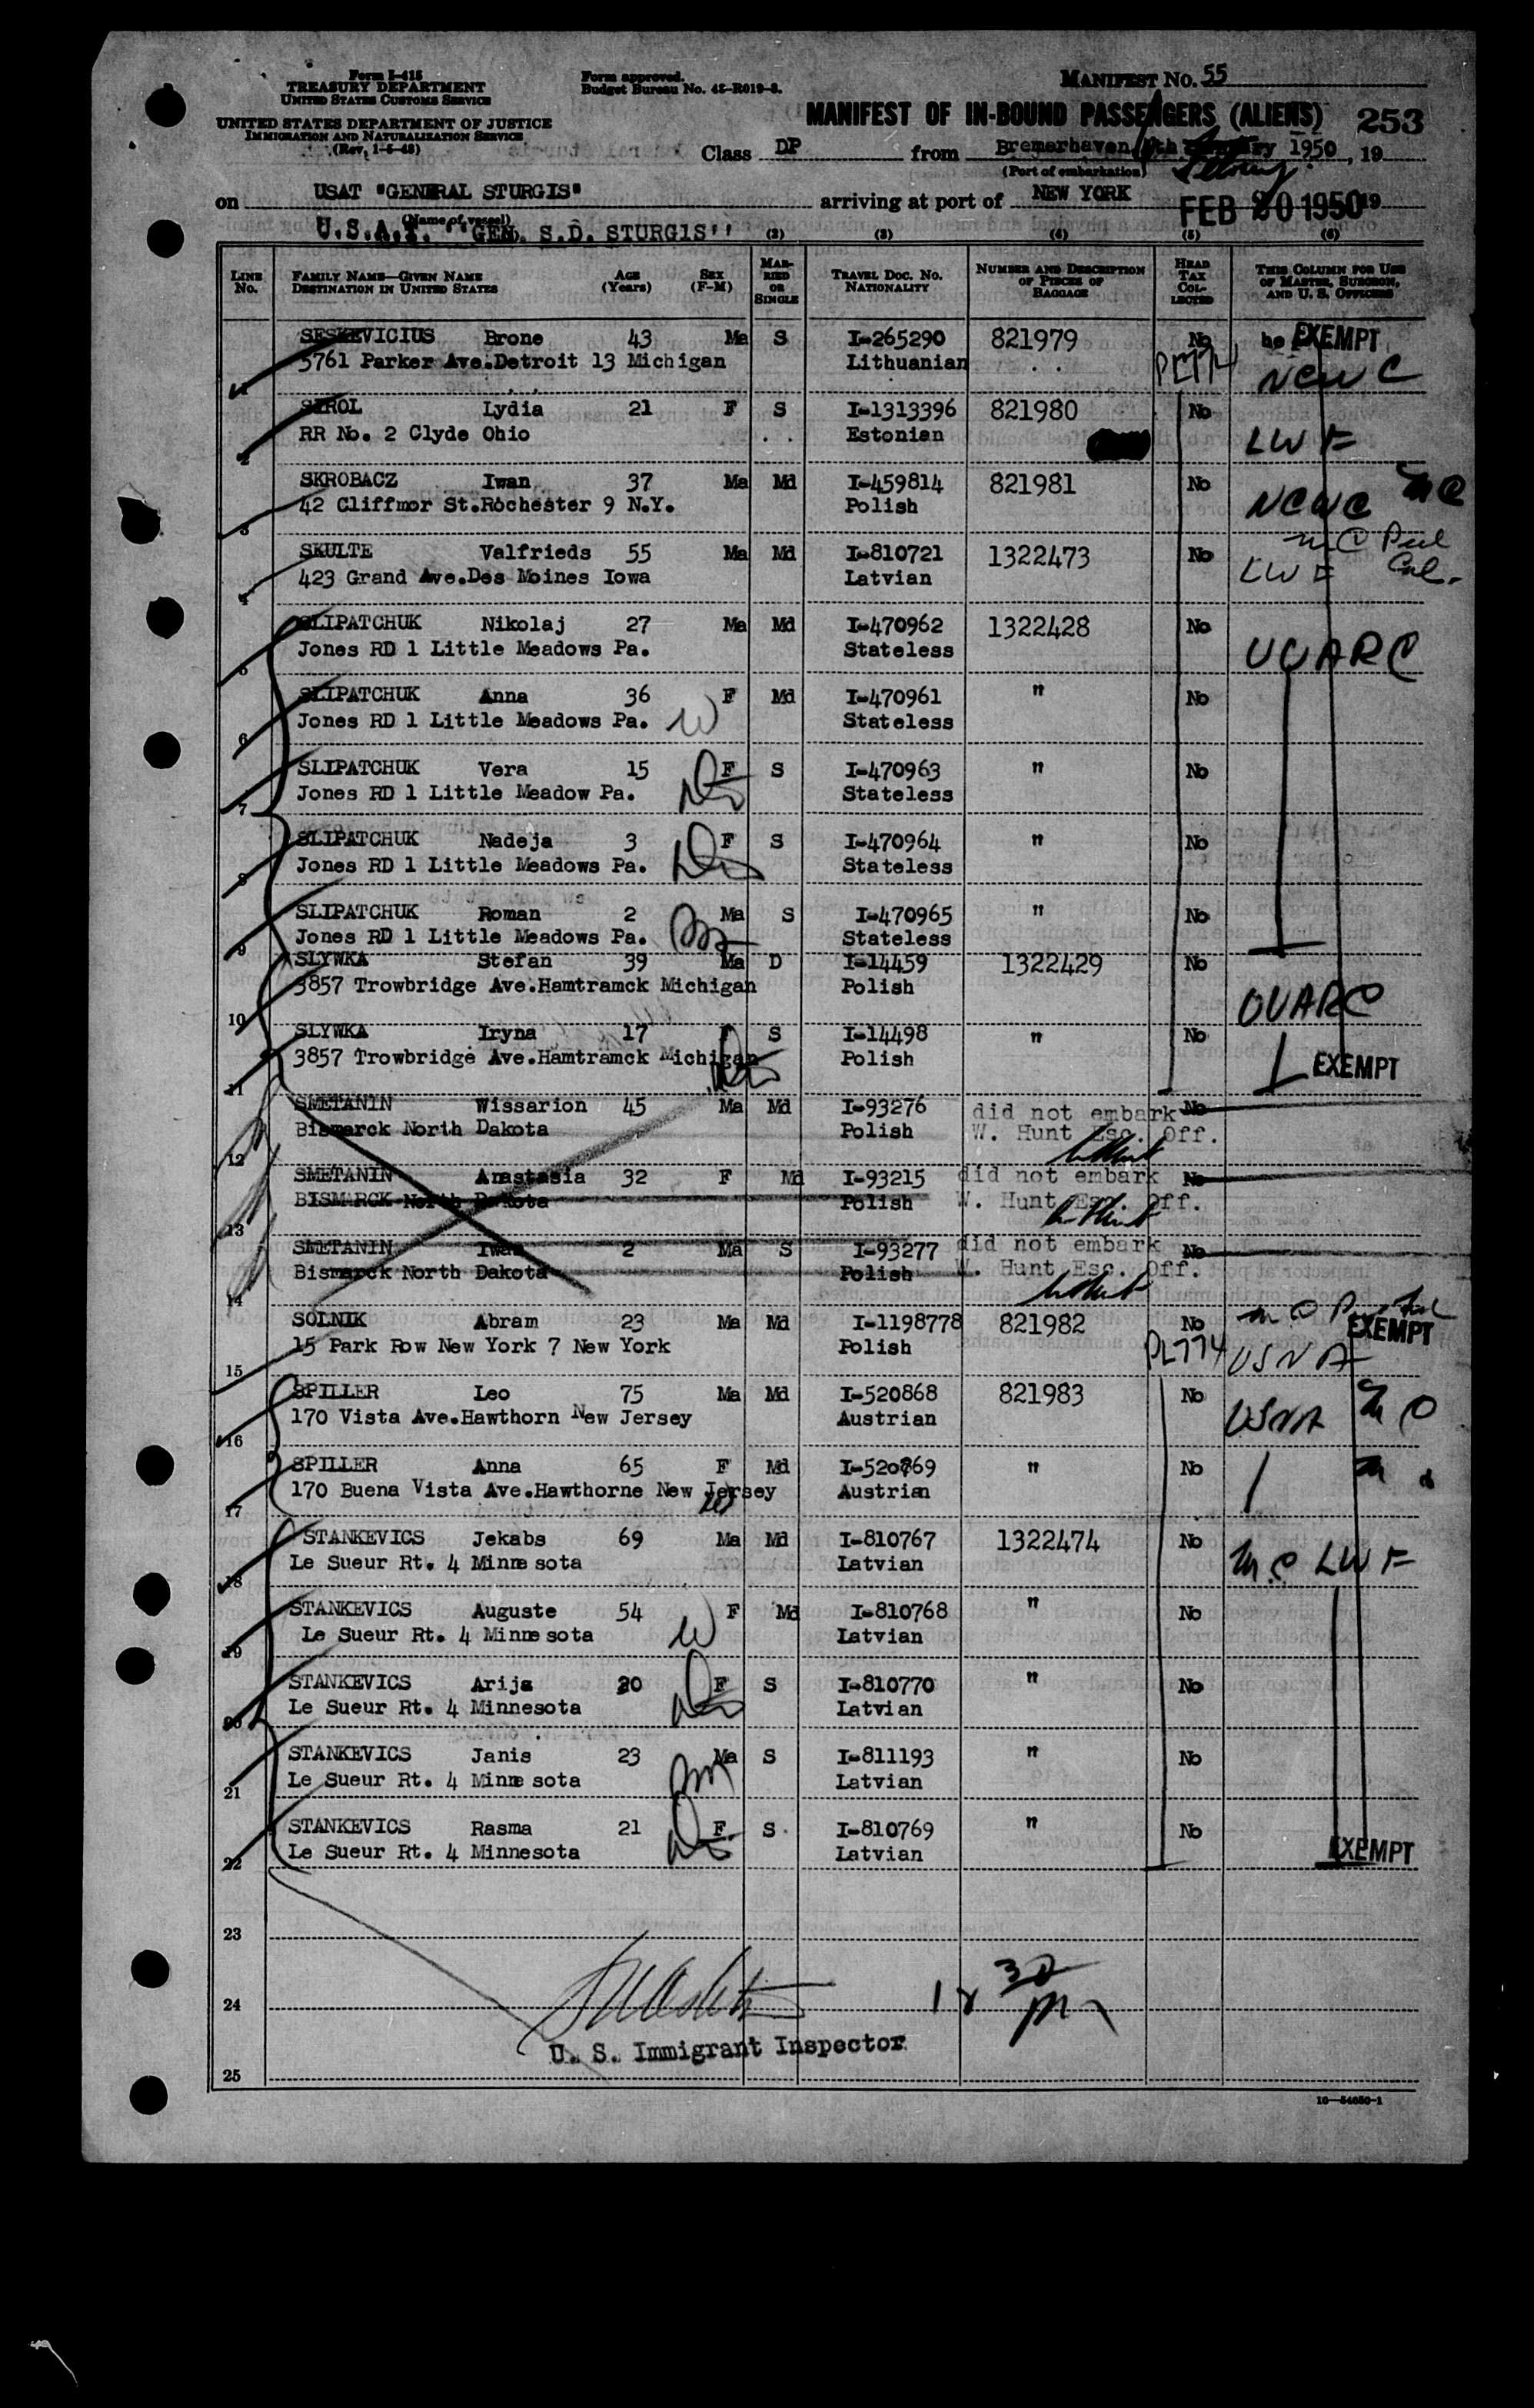 Form I-415
TREASURY DEPARTMENT
UNITED STATES CUSTOMS SERVICE
UNITED STATES DEPARTMENT OF JUSTICE
IMMIGRATION AND NATURALIZATION SERVICE
(Rev. 1-5-48)
Form approved.
Budget Bureau No. 43-R019-3.
MANIFEST No. 55
MANIFEST OF IN-BOUND PASSENGERS (ALIENS) 253
Class DP from Bremerhaven 1950, 19
(Port of embarkation)
on USAT "GENERAL STURGIS" arriving at port of NEW YORK FEB 20 1950 19
(Name of vessel)
U.S.A.T. ''GEN. S.D. STURGIS''
(2) (3) (4) (5) (6)
LINE No. FAMILY NAME—GIVEN NAME DESTINATION IN UNITED STATES AGE (Years) SEX (F-M) MARRIED OR SINGLE TRAVEL DOC. No. NATIONALITY NUMBER AND DESCRIPTION OF PIECES OF BAGGAGE HEAD TAX COLLECTED THIS COLUMN FOR USE OF MASTER, SURGEON, AND U. S. OFFICERS
1 SESKEVICIUS Brone 43 Ma S I-265290 821979 No EXEMPT
5761 Parker Ave.Detroit 13 Michigan Lithuanian PL774 NCWC
2 SIROL Lydia 21 F S I-1313396 821980 No
RR No. 2 Clyde Ohio Estonian LWF
3 SKROBACZ Iwan 37 Ma Md I-459814 821981 No
42 Cliffmor St.Rochester 9 N.Y. Polish NCWC
4 SKULTE Valfrieds 55 Ma Md I-810721 1322473 No
423 Grand Ave.Des Moines Iowa Latvian LWF
5 SLIPATCHUK Nikolaj 27 Ma Md I-470962 1322428 No
Jones RD 1 Little Meadows Pa. Stateless UUARC
6 SLIPATCHUK Anna 36 F Md I-470961 " No
Jones RD 1 Little Meadows Pa. W Stateless
7 SLIPATCHUK Vera 15 F S I-470963 " No
Jones RD 1 Little Meadow Pa. Stateless
8 SLIPATCHUK Nadeja 3 F S I-470964 " No
Jones RD 1 Little Meadows Pa. Stateless
9 SLIPATCHUK Roman 2 Ma S I-470965 " No
Jones RD 1 Little Meadows Pa. Stateless
10 SLYWKA Stefan 39 Ma D I-14459 1322429 No
3857 Trowbridge Ave.Hamtramck Michigan Polish UUARC
11 SLYWKA Iryna 17 F S I-14498 " No
3857 Trowbridge Ave.Hamtramck Michigan Polish EXEMPT
12 SMETANIN Wissarion 45 Ma Md I-93276 did not embark No
Bismarck North Dakota Polish W. Hunt Esc. Off.
13 SMETANIN Anastasia 32 F Md I-93215 did not embark No
BISMARCK North Dakota Polish W. Hunt Esc. Off.
14 SMETANIN Iwan 2 Ma S I-93277 did not embark No
Bismarck North Dakota Polish W. Hunt Esc. Off.
15 SOLNIK Abram 23 Ma Md I-1198778 821982 No EXEMPT
15 Park Row New York 7 New York Polish PL774 USNA
16 SPILLER Leo 75 Ma Md I-520868 821983 No
170 Vista Ave.Hawthorn New Jersey Austrian USNA
17 SPILLER Anna 65 F Md I-520869 " No
170 Buena Vista Ave.Hawthorne New Jersey Austrian
18 STANKEVICS Jekabs 69 Ma Md I-810767 1322474 No
Le Sueur Rt. 4 Minnesota Latvian LWF
19 STANKEVICS Auguste 54 F Md I-810768 " No
Le Sueur Rt. 4 Minnesota W Latvian
20 STANKEVICS Arija 20 F S I-810770 " No
Le Sueur Rt. 4 Minnesota Latvian
21 STANKEVICS Janis 23 Ma S I-811193 " No
Le Sueur Rt. 4 Minnesota Latvian
22 STANKEVICS Rasma 21 F S I-810769 " No
Le Sueur Rt. 4 Minnesota Latvian EXEMPT
23
24
U. S. Immigrant Inspector
25